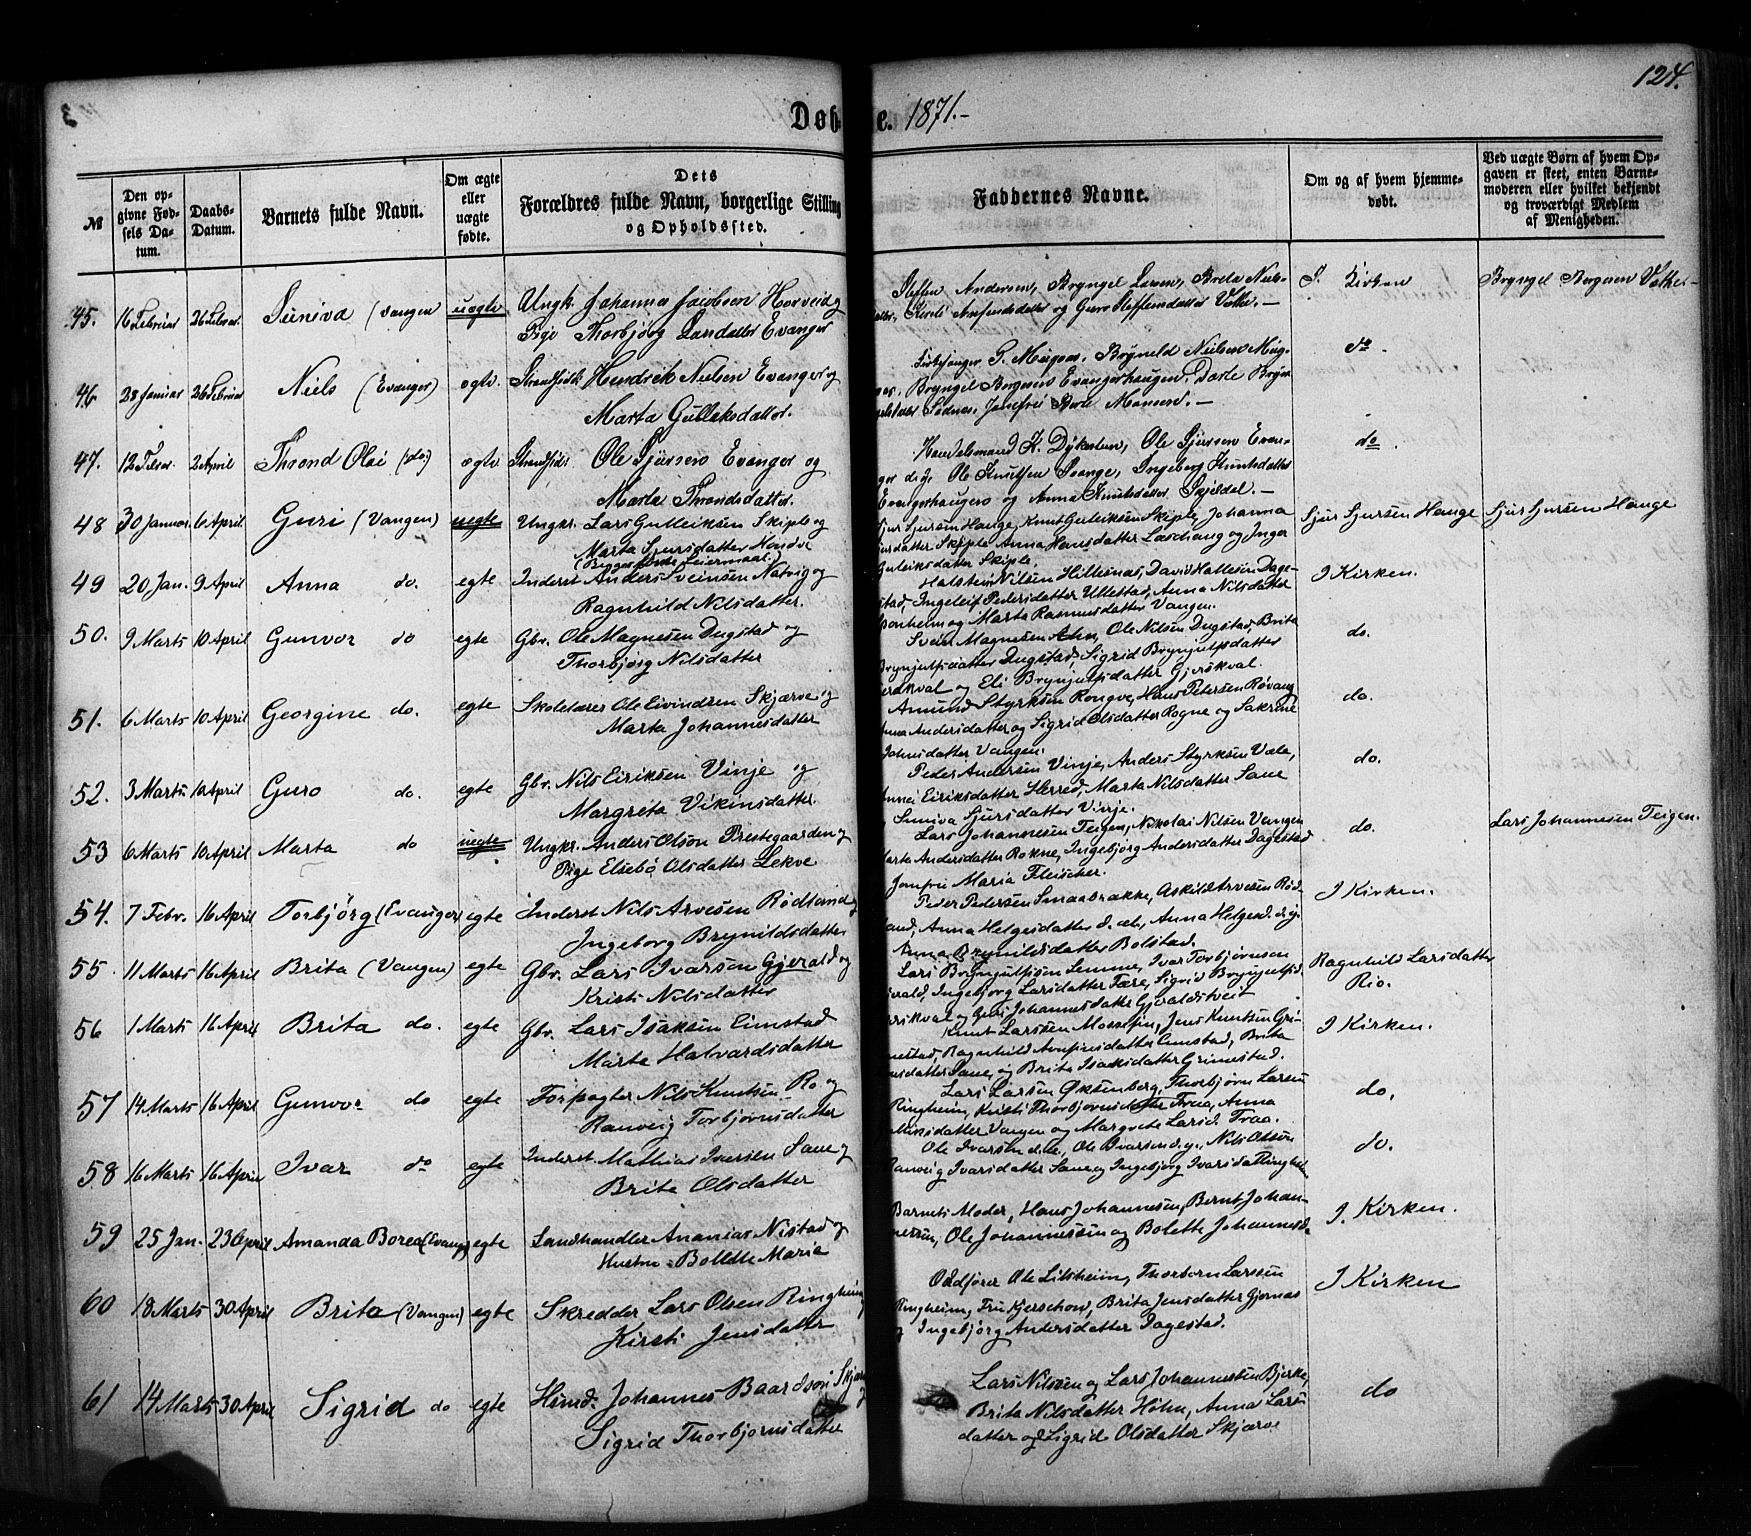 124.
Døb e. 1871.-
№
Den opgivne Fødsels Datum.
Daabs-Datum.
Barnets fulde Navn.
Om ægte eller uægte fødte.
Dets Forældres fulde Navn, borgerlige Stilling og Opholdssted.
Faddernes Navne.
Om og af hvem hjemmedøbt.
Ved uægte Børn af hvem Opgaven er skeet, enten Barnemoderen eller hvilket bekjendt og troværdigt Medlem af Menigheden.
45. 16 Februar 26 Februar Suniva (Vangen uægte Ungk. Johannes Jacobsen Horveid og
Pige Thorbjørg Larsdatter Evanger
Steffen Andersen, Bryngel Larsen, Brita Niels-
datter, Kirsti Arnfindsdatter og Guro Steffensdatter Vethe.- I Kirken Bryngel Borgesen Vethe-
46. 28 Januar 26 Februar Niels (Evanger) ægte. Strandsidd. Hendrick Nielsen Evanger og
Marta Gullaksdatter.
Kirkesanger G. Mugaas, Brynild Nielsen Mug-
aas, Bryngel Borgesen Evangerhaugen, Dorte Bryn-
gelsdatter Sødnes, Jomfru Berte Monsen.- do -
47. 12 Febr. 2 April Thrond Olai (do) ægte Strandsidd. Ole Sjursen Evanger og
Marta Throndsdatter.
Handelsmand K. Dykesten, Ole Sjursen Evan-
ger d.y. Ole Knutsen Svange, Ingeborg Knutsdatter
Evangerhaugen og Anna Knutsdatter Skjeldal.- do.
48 30 Januar 6 April Guri (Vangen) uegte Ungkr. Lars Gulleiksen Skiple og
Marta Sjursdatter Hondve
(Begges første Leiermaal.)
Sjur Sjursen Hauge, Knut Gulleiksen Skiple, Johanna
Sjursdatter Skiple Anna Hansdatter Lasehaug og Inger
Gulleiksdatter Skiple. Sjur Sjursen Hauge Sjur Sjursen Hauge
49 20 Jan. 9 April Anna do. egte Inderst Anders Sveinsen Natvig og
Ragnhild Nilsdatter.
Halstein Nilsen Hillesnas, David Hallesen Dage-
stad, Ingeleif Pedersdatter Ullestad, Anna Nilsdatter
Bonheim og Marta Rasmusdatter Vangen. I Kirken.
50. 9 Marts 10 April Gunvor do egte Gbr. Ole Magnesen Dugstad og
Thorbjørg Nilsdatter
Svein Magnesen Ahn, Ole Nilsen Dugstad, Brita
Brynjulfsdatter Dugstad, Sigrid Brynjulfsdatter
Gjerskval og Eli Brynjulfsdatter Gjerskval. do.
51. 6 Marts 10 April Georgine do. egte Skolelærer Ole Eivindsen Skjærve og
Marta Johannesdatter
Amund Styrksen Rongve, Hans Petersen Røvang
Anna Andersdatter og Sigrid Olsdatter Rogne og Sakrine
Johnsdatter Vangen. do.
52. 3 Marts 10 April Guro do. egte Gbr. Nils Eiriksen Vinje og
Margreta Vikinsdatter.
Peder Andersen Vinje, Anders Styrksen Væle,
Annei Eiriksdatter Herred, Marta Nilsdatter Saue
Suniva Sjursdatter Vinje. do.
53 6 Marts 10 April Marta do uegte Ungkr. Anders Olson Prestegaarden og
Pige Elsebø Olsdatter Lekve
Lars Johannesen Teigen, Nikolai Nilsen Vangen
Marta Andersdatter Rokne, Ingebjørg Andersdatter Dagestad
Jomfru Maria Fleischer. do. Lars Johannesen Teigen.
54. 7 Febr. 16 April Torbjörg (Evanger) egte Inderst Nils Arvesen Rødland og
Ingeborg Brynildsdatter
Peder Pedersen Smaabrakke, Askild Arvesen Rød-
land, Anna Helgesdatter d. æl., Anna Helgesd. d. y.
Anna Brynildsdatter Bolstad. I Kirken.
55. 11 Marts 16 April Brita (Vangen) egte Gbr. Lars Ivarsen Gjerald og
Kristi Nilsdatter
Lars Brynjulfsen Lemme, Ivar Torbjørnsen
Gjerald, Ingebjørg Larsdatter Fære, Sigrid Brynjulfsd.
Gjerskval og Guri Johannesdatter Gjeraldstveit Ragnhild Larsdatter
Rio.
56 1 Marts 16 April Brita do. egte Gbr. Lars Isaksen Eimstad
Marta Halvardsdatter
Knut Larssen Mossefin, Jens Knutsen Gri-
mestad, Ragnhild Arnfinsdatter Eimstad, Brita
datter Saue, og Brita Isaksdatter Grimestad. I Kirken.
57 14 Marts 16 April Gunvor do egte Forpagter Nils Knutsen Ro og
Ranveig Torbjørnsdatter
Lars Larsen Øksenberg, Thorbjørn Larsen
Ringheim, Kristi Thorbjørnsdatter Traa, Anna
datter Vangen og Margrete Larsd. Traa. do.
58 16 Marts 16 April Ivar do egte Inderst Mathias Iversen Saue og
Brita Olsdatter
Ole Ivarsen d.e., Ole Ivarsen d.y., Nils Olson
Ranveig Ivarsdatter Saue og Ingebjørg Ivarsdatter Ringheim I do.
59 25 Jan. 23 April Amanda Borea (Evang. egte Landhandler Ananias Nistad og
Hustru Bolette Maria
Barnets Moder, Hans Johannesen, Bernt Johan-
nessen, Ole Johannessen og Bolette Johannesd. I. Kirken.
60 18 Marts 30 April Brita (Vangen) egte Skredder Lars Olsen Ringheim
Kirsti Jensdatter
Oddfører Ole Litsheim, Thorbern Larssen
Ringheim, Fru Kjerschow, Brita Jensdatter Gjernas
og Ingebjørg Andersdatter Dagestad. I Kirken
61 14 Marts 30 April Sigrid do egte Husmd. Johannes Baardson Skjær
Sigrid Thorbjørnsdatter
Lars Nilssen og Lars Johannessen Bjerke,
Brita Nilsdatter Hohn, Anna Lars-
datter og Sigrid Olsdatter Skjærve do